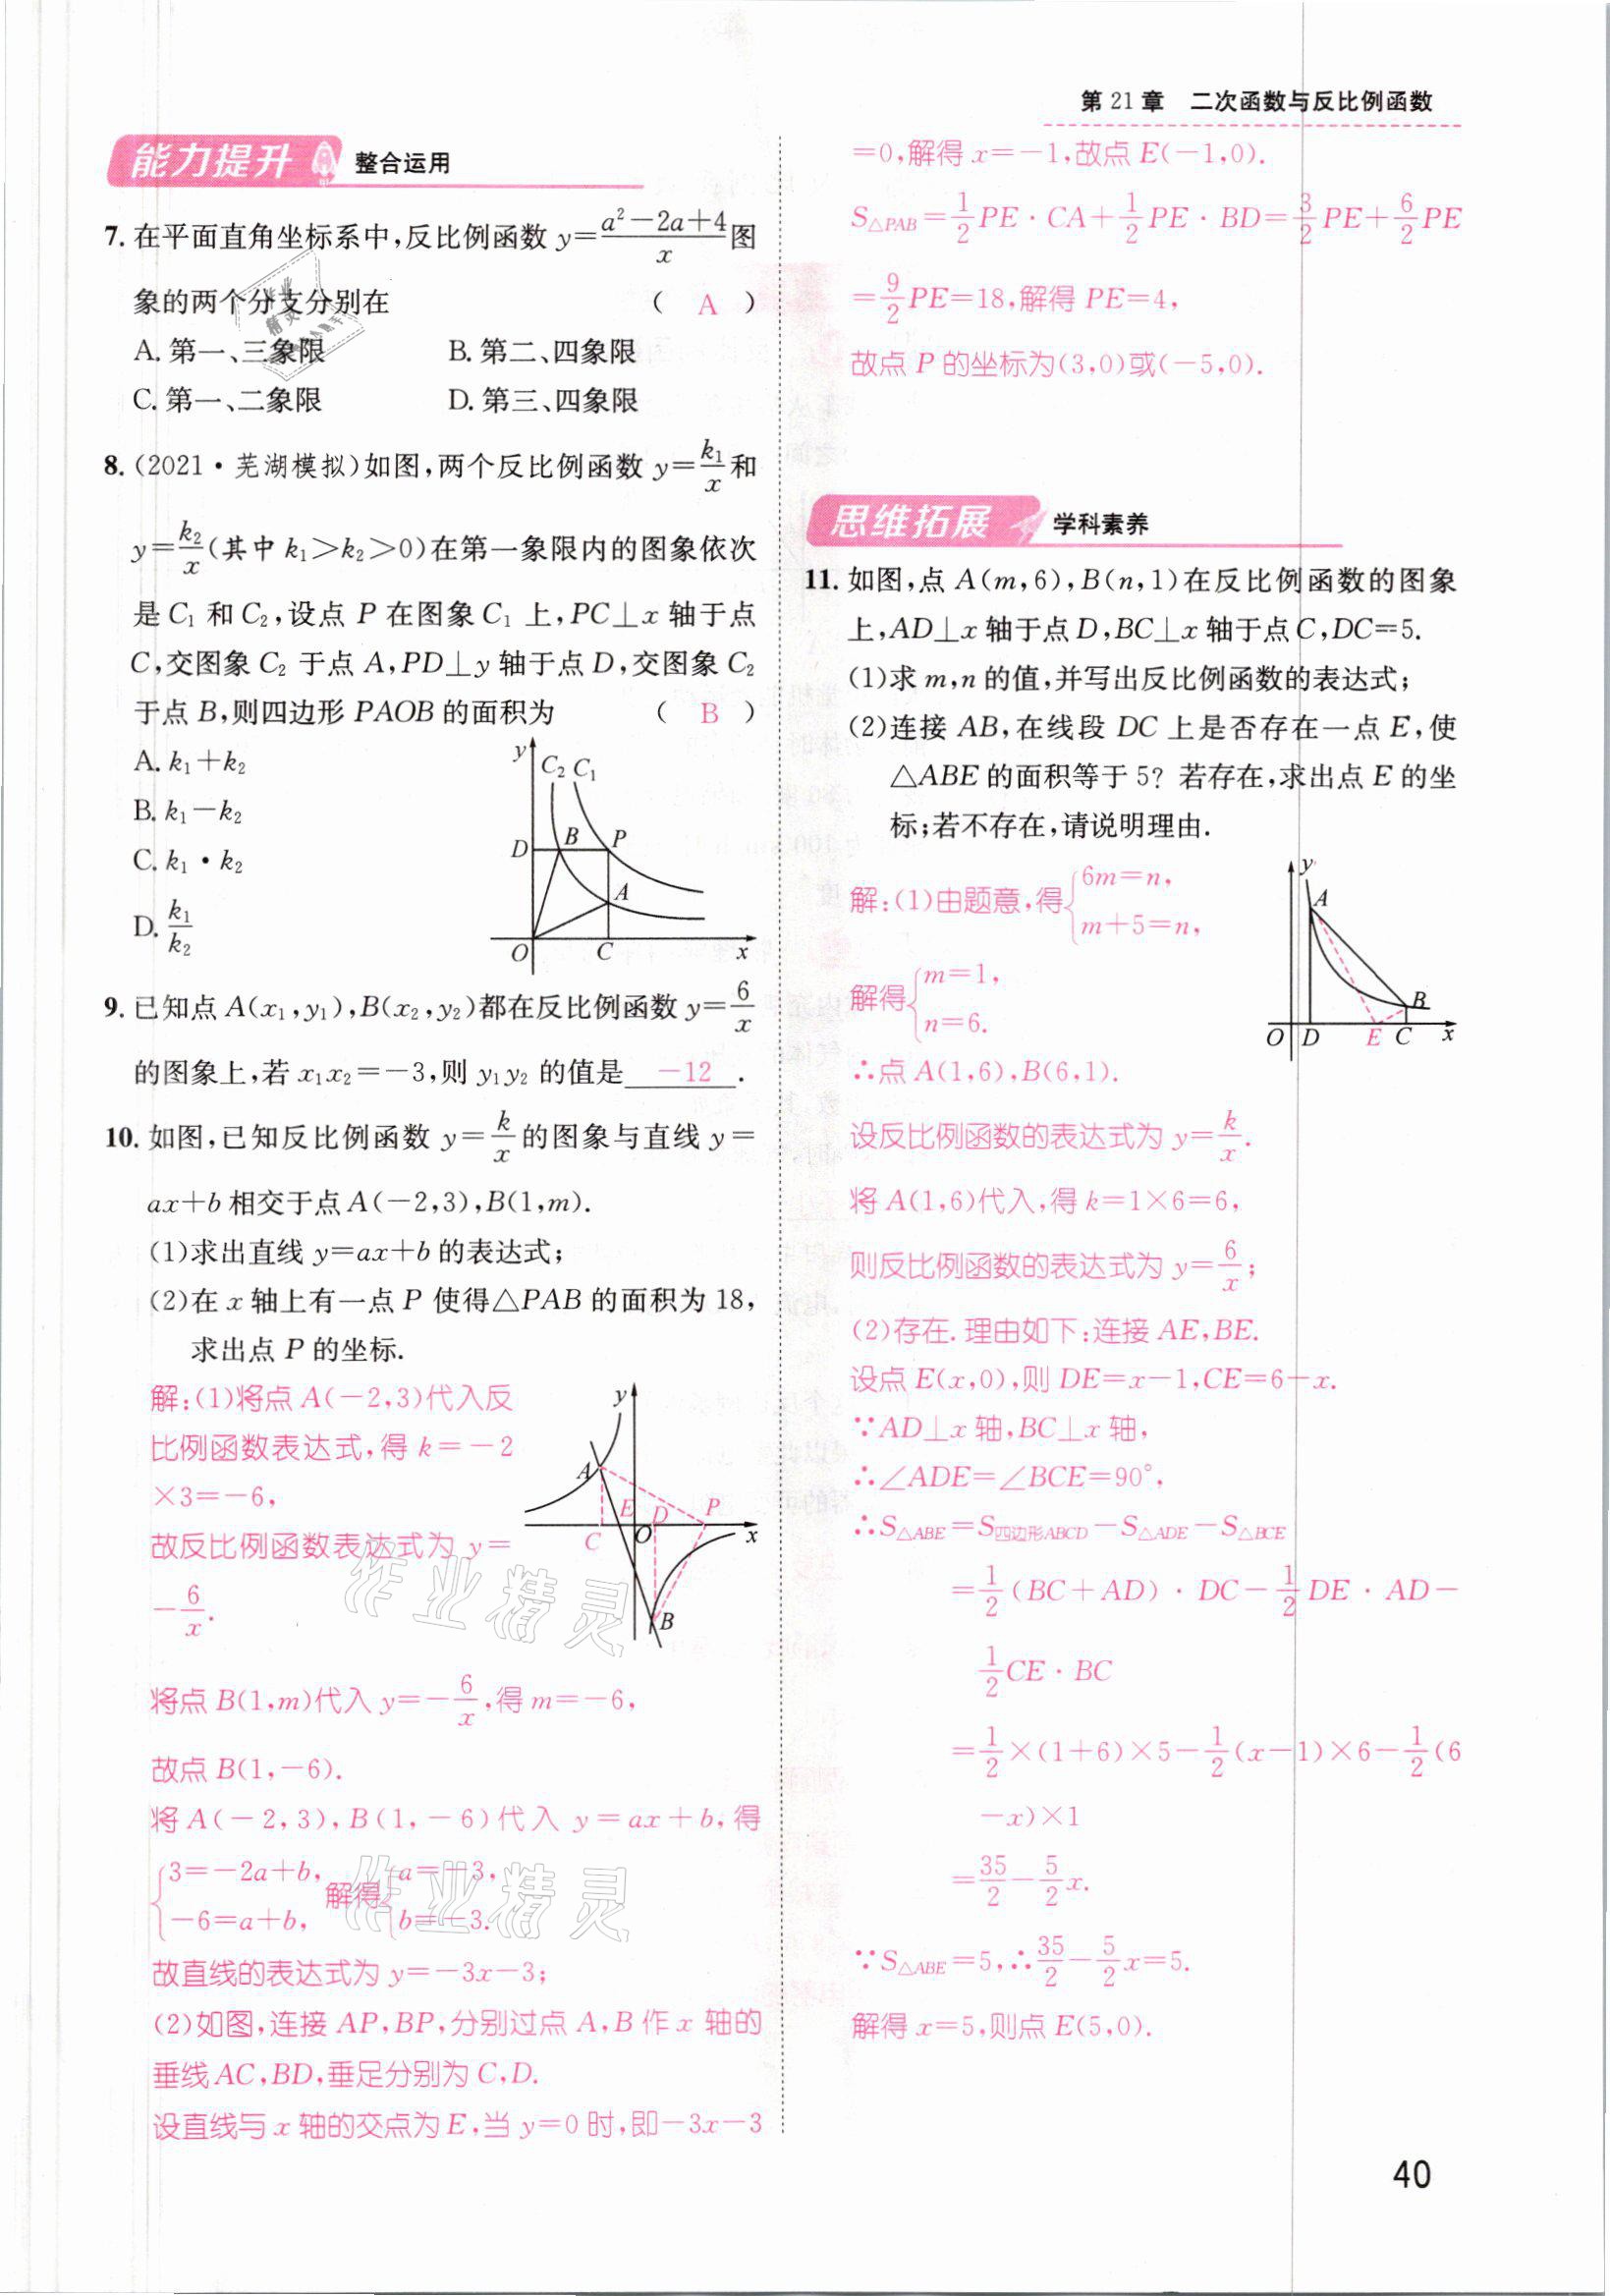 第 21 章　二次函数与反比例函数
能力提升 整合运用
7. 在平面直角坐标系中,反比例函数 y=(a²-2a+4)/x 图
象的两个分支分别在 ( A )
A. 第一、三象限 B. 第二、四象限
C. 第一、二象限 D. 第三、四象限
8. (2021·芜湖模拟)如图,两个反比例函数 y=k₁/x 和
y=k₂/x (其中 k₁>k₂>0)在第一象限内的图象依次
是 C₁ 和 C₂,设点 P 在图象 C₁ 上,PC⊥x 轴于点
C,交图象 C₂ 于点 A,PD⊥y 轴于点 D,交图象 C₂
于点 B,则四边形 PAOB 的面积为 ( B )
A. k₁+k₂
B. k₁-k₂
C. k₁·k₂
D. k₁/k₂
y C₂ C₁
D B P
A
O C x
9. 已知点 A(x₁,y₁),B(x₂,y₂)都在反比例函数 y=6/x
的图象上,若 x₁x₂=-3,则 y₁y₂ 的值是 -12 .
10. 如图,已知反比例函数 y=k/x 的图象与直线 y=
ax+b 相交于点 A(-2,3),B(1,m).
(1)求出直线 y=ax+b 的表达式;
(2)在 x 轴上有一点 P 使得△PAB 的面积为 18,
求出点 P 的坐标.
解:(1)将点 A(-2,3)代入反
比例函数表达式,得 k=-2
×3=-6,
故反比例函数表达式为 y=
-6/x.
y
A
E D P
C O x
B
将点 B(1,m)代入 y=-6/x,得 m=-6,
故点 B(1,-6).
将 A(-2,3),B(1,-6)代入 y=ax+b,得
{3=-2a+b, -6=a+b, 解得{a=-3, b=-3.
故直线的表达式为 y=-3x-3;
(2)如图,连接 AP,BP,分别过点 A,B 作 x 轴的
垂线 AC,BD,垂足分别为 C,D.
设直线与 x 轴的交点为 E,当 y=0 时,即-3x-3
=0,解得 x=-1,故点 E(-1,0).
S△PAB=1/2 PE·CA+1/2 PE·BD=3/2 PE+6/2 PE
=9/2 PE=18,解得 PE=4,
故点 P 的坐标为(3,0)或(-5,0).
思维拓展 学科素养
11. 如图,点 A(m,6),B(n,1)在反比例函数的图象
上,AD⊥x 轴于点 D,BC⊥x 轴于点 C,DC=5.
(1)求 m,n 的值,并写出反比例函数的表达式;
(2)连接 AB,在线段 DC 上是否存在一点 E,使
△ABE 的面积等于 5? 若存在,求出点 E 的坐
标;若不存在,请说明理由.
解:(1)由题意,得{6m=n, m+5=n,
解得{m=1, n=6.
y
A
B
O D E C x
∴点 A(1,6),B(6,1).
设反比例函数的表达式为 y=k/x.
将 A(1,6)代入,得 k=1×6=6,
则反比例函数的表达式为 y=6/x;
(2)存在.理由如下:连接 AE,BE.
设点 E(x,0),则 DE=x-1,CE=6-x.
∵AD⊥x 轴,BC⊥x 轴,
∴∠ADE=∠BCE=90°,
∴S△ABE=S四边形ABCD-S△ADE-S△BCE
=1/2(BC+AD)·DC-1/2 DE·AD-
1/2 CE·BC
=1/2×(1+6)×5-1/2(x-1)×6-1/2(6
-x)×1
=35/2-5/2 x.
∵S△ABE=5,∴35/2-5/2 x=5.
解得 x=5,则点 E(5,0).
作业精灵
作业精灵
40